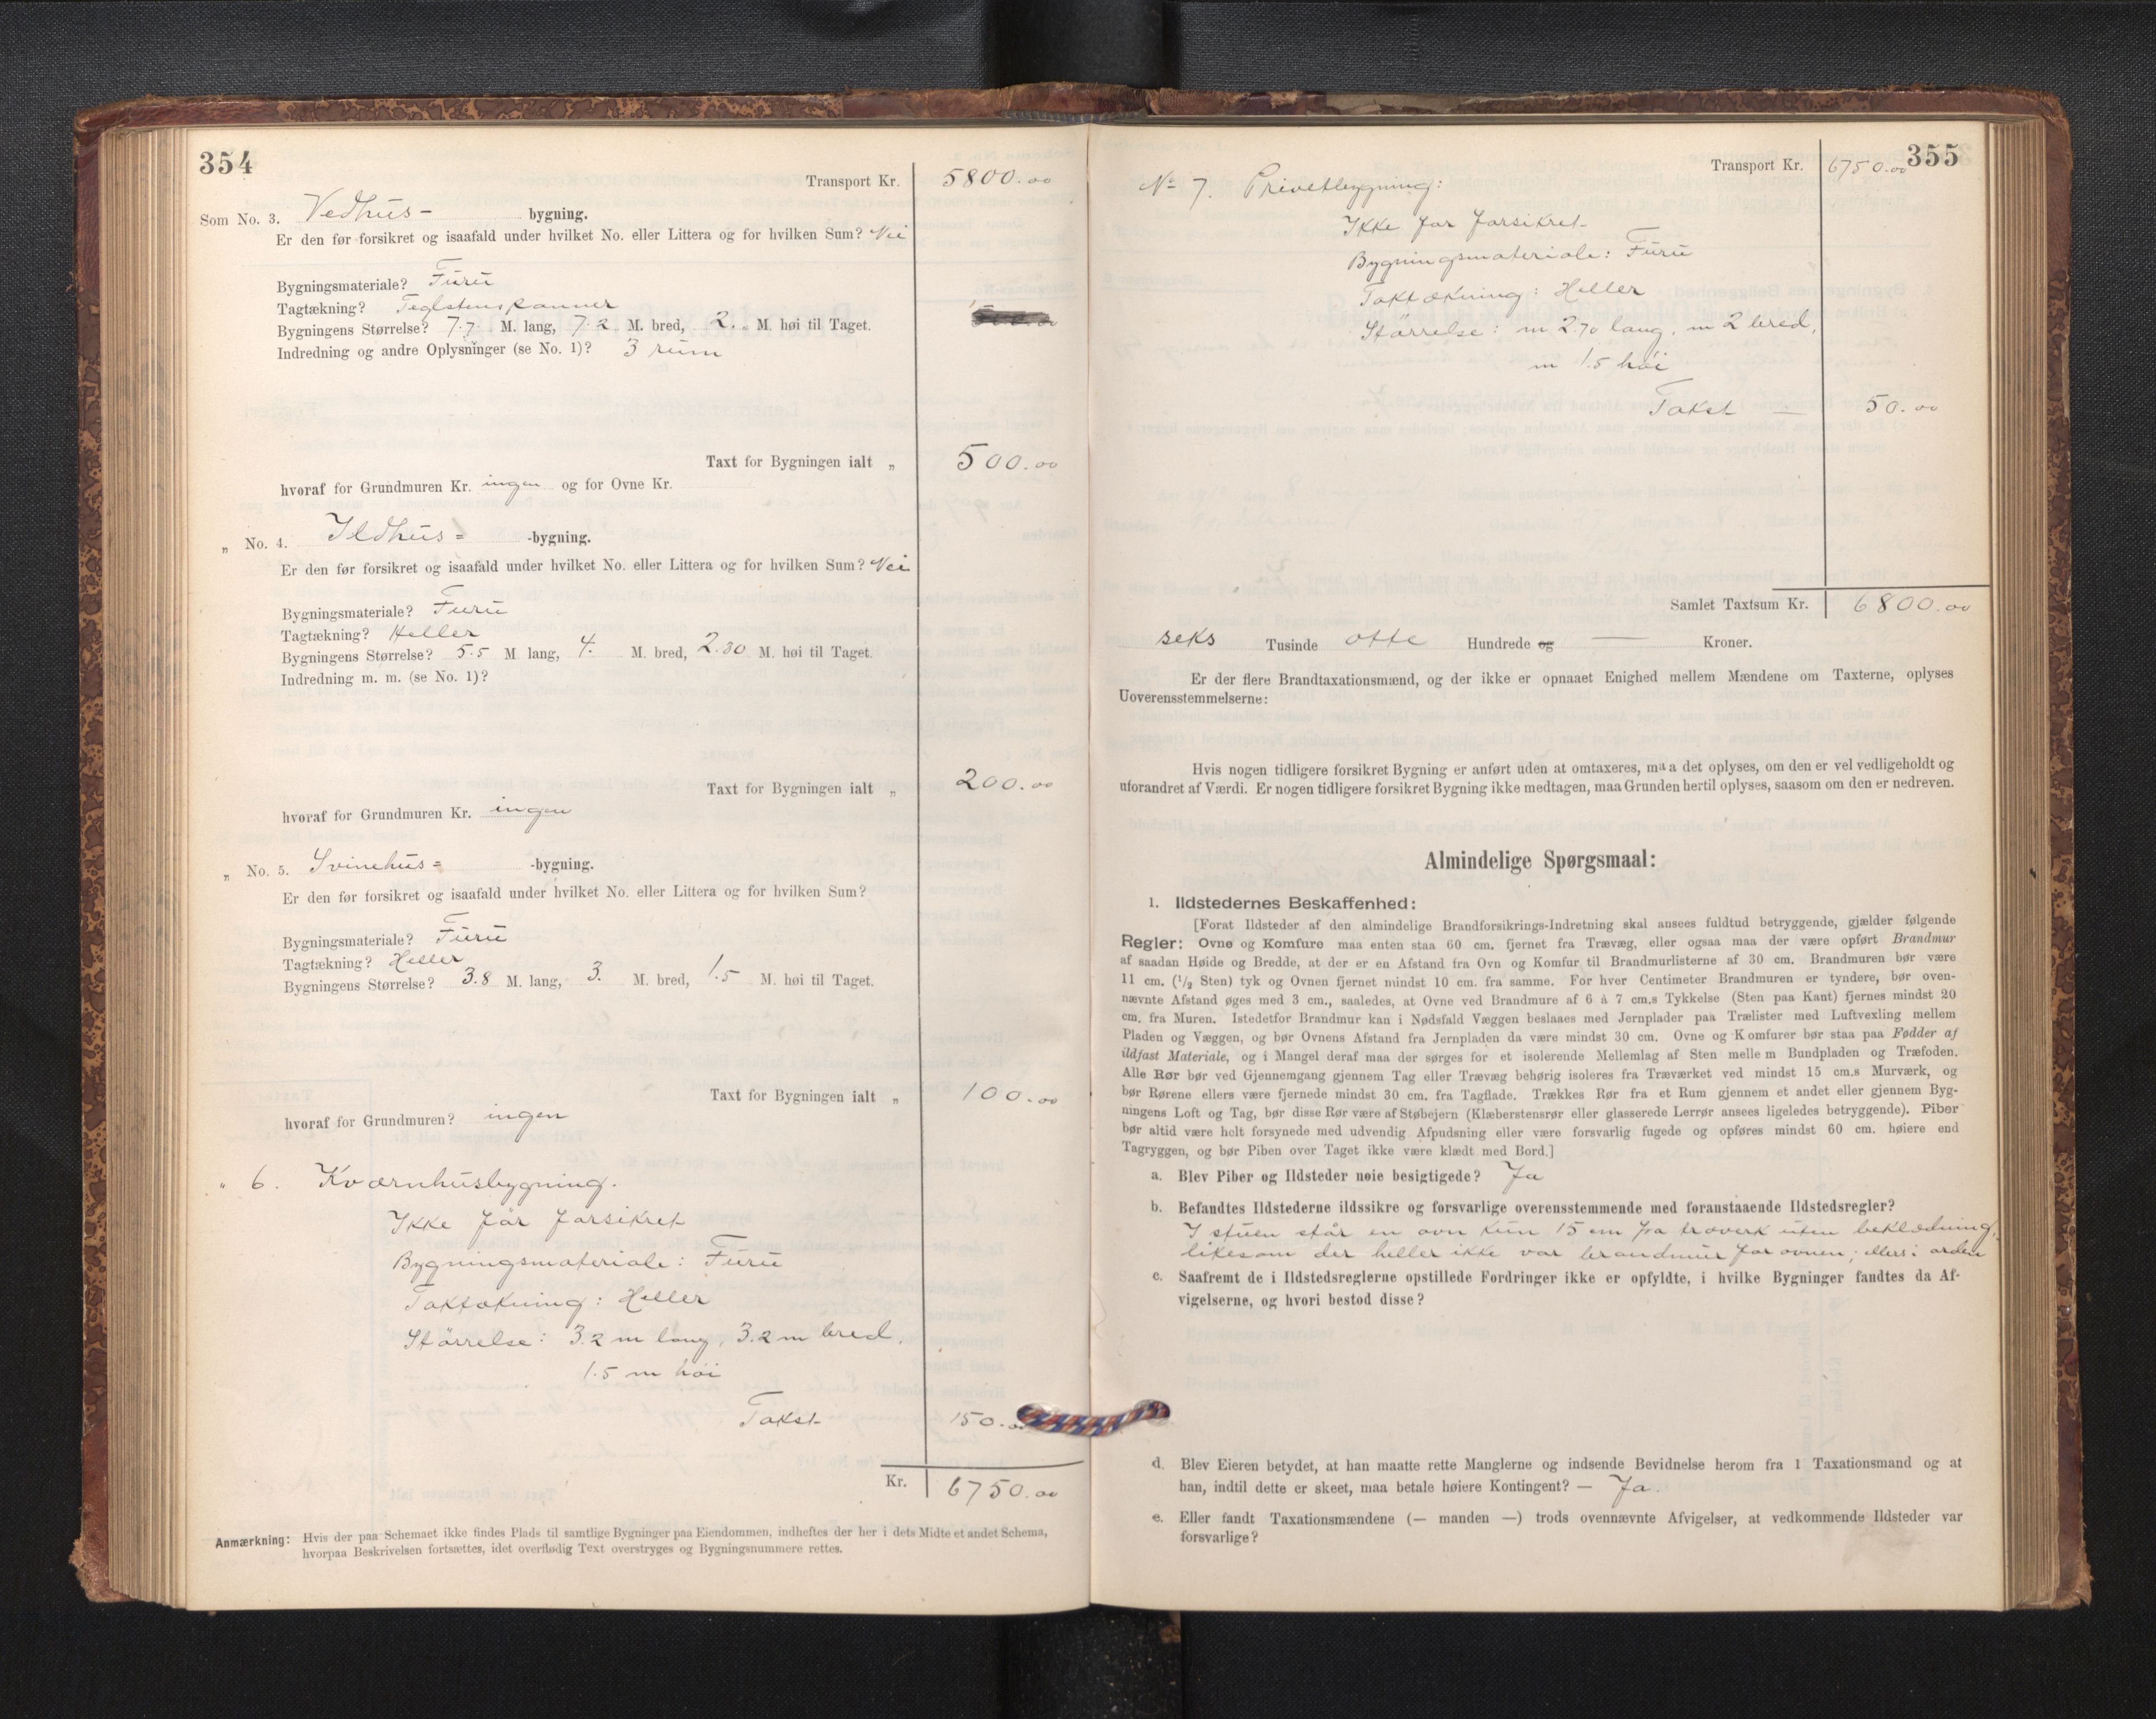 354
Transport Kr. 5800.00
Som No. 3. Vedhus- bygning.
Er den før forsikret og isaafald under hvilket No. eller Littera og for hvilken Sum? Nei
Bygningsmateriale? Furu
Tagtækning? Teglstenspanner
Bygningens Størrelse? 7.7 M. lang, 7.2 M. bred, 2. M. høi til Taget.
Indredning og andre Oplysninger (se No. 1)? 3 rum
Taxt for Bygningen ialt „ 500.00
hvoraf for Grundmuren Kr. ingen og for Ovne Kr.
„ No. 4. Ildhus= -bygning.
Er den før forsikret og isaafald under hvilket No. eller Littera og for hvilken Sum? Nei
Bygningsmateriale? Furu
Tagtækning? Heller
Bygningens Størrelse? 5.5 M lang, 4. M. bred, 2.30 M. høi til Taget.
Indredning m. m. (se No. 1)?
Taxt for Bygningen ialt „ 200.00
hvoraf for Grundmuren Kr. ingen
„ No. 5. Svinehus= -bygning.
Er den før forsikret og isaafald under hvilket No. eller Littera og for hvilken Sum?
Bygningsmateriale? Furu
Tagtækning? Heller
Bygningens Størrelse? 3.8 M. lang, 3. M. bred, 1.5 M. høi til Taget.
Taxt for Bygningen ialt „ 100.00
hvoraf for Grundmuren? ingen
„ 6. Kværnhusbygning.
Ikke før forsikret
Bygningsmateriale: Furu
Taktækning: Heller
Størrelse: 3.2 m lang, 3.2 m bred,
1.5 m høi
Takst 150.00
Kr. 6750.00
Anmærkning: Hvis der paa Schemaet ikke findes Plads til samtlige Bygninger paa Eiendommen, indheftes der her i dets Midte et andet Schema,
hvorpaa Beskrivelsen fortsættes, idet overflødig Text overstryges og Bygningsnummere rettes.
355
Transport Kr. 6750.00
No 7. Privetbygning:
Ikke før forsikret
Bygningsmateriale: Furu
Taktækning: Heller
Størrelse: m 2.70 lang, m 2 bred,
m 1.5 høi
Takst — 50.00
Samlet Taxtsum Kr. 6800.00
seks Tusinde otte Hundrede og — Kroner.
Er der flere Brandtaxationsmænd, og der ikke er opnaaet Enighed mellem Mændene om Taxterne, oplyses
Uoverensstemmelserne:
Hvis nogen tidligere forsikret Bygning er anført uden at omtaxeres, maa det oplyses, om den er vel vedligeholdt og
uforandret af Værdi. Er nogen tidligere forsikret Bygning ikke medtagen, maa Grunden hertil oplyses, saasom om den er nedreven.
Almindelige Spørgsmaal:
1. Ildstedernes Beskaffenhed:
[Forat Ildsteder af den almindelige Brandforsikrings-Indretning skal ansees fuldtud betryggende, gjælder følgende
Regler: Ovne og Komfure maa enten staa 60 cm. fjernet fra Trævæg, eller ogsaa maa der være opført Brandmur
af saadan Høide og Bredde, at der er en Afstand fra Ovn og Komfur til Brandmurlisterne af 30 cm. Brandmuren bør være
11 cm. (1/2 Sten) tyk og Ovnen fjernet mindst 10 cm. fra samme. For hver Centimeter Brandmuren er tyndere, bør oven-
nævnte Afstand øges med 3 cm., saaledes, at Ovne ved Brandmure af 6 à 7 cm.s Tykkelse (Sten paa Kant) fjernes mindst 20
cm. fra Muren. Istedetfor Brandmur kan i Nødsfald Væggen beslaaes med Jernplader paa Trælister med Luftvexling mellem
Pladen og Væggen, og bør Ovnens Afstand fra Jernpladen da være mindst 30 cm. Ovne og Komfurer bør staa paa Fødder af
ildfast Materiale, og i Mangel deraf maa der sørges for et isolerende Mellemlag af Sten mellem Bundpladen og Træfoden.
Alle Rør bør ved Gjennemgang gjennem Tag eller Trævæg behørig isoleres fra Træværket ved mindst 15 cm.s Murværk, og
bør Rørene ellers være fjernede mindst 30 cm. fra Tagflade. Trækkes Rør fra et Rum gjennem et andet eller gjennem Byg-
ningens Loft og Tag, bør disse Rør være af Støbejern (Klæberstensrør eller glasserede Lerrør ansees ligeledes betryggende). Piber
bør altid være helt forsynede med udvendig Afpudsning eller være forsvarlig fugede og opføres mindst 60 cm. høiere end
Tagryggen, og bør Piben over Taget ikke være klædt med Bord.]
a. Blev Piber og Ildsteder nøie besigtigede? Ja
b. Befandtes Ildstederne ildssikre og forsvarlige overensstemmende med foranstaaende Ildstedsregler?
I stuen står en ovn kun 15 cm fra træverk uten beklædning,
likesom der heller ikke var brandmur for ovnen; ellers i orden
c. Saafremt de i Ildstedsreglerne opstillede Fordringer ikke er opfyldte, i hvilke Bygninger fandtes da Af-
vigelserne, og hvori bestod disse?
d. Blev Eieren betydet, at han maatte rette Manglerne og indsende Bevidnelse herom fra 1 Taxationsmand og at
han, indtil dette er skeet, maa betale høiere Kontingent? — Ja.
e. Eller fandt Taxationsmændene (— manden —) trods ovennævnte Afvigelser, at vedkommende Ildsteder var
forsvarlige?